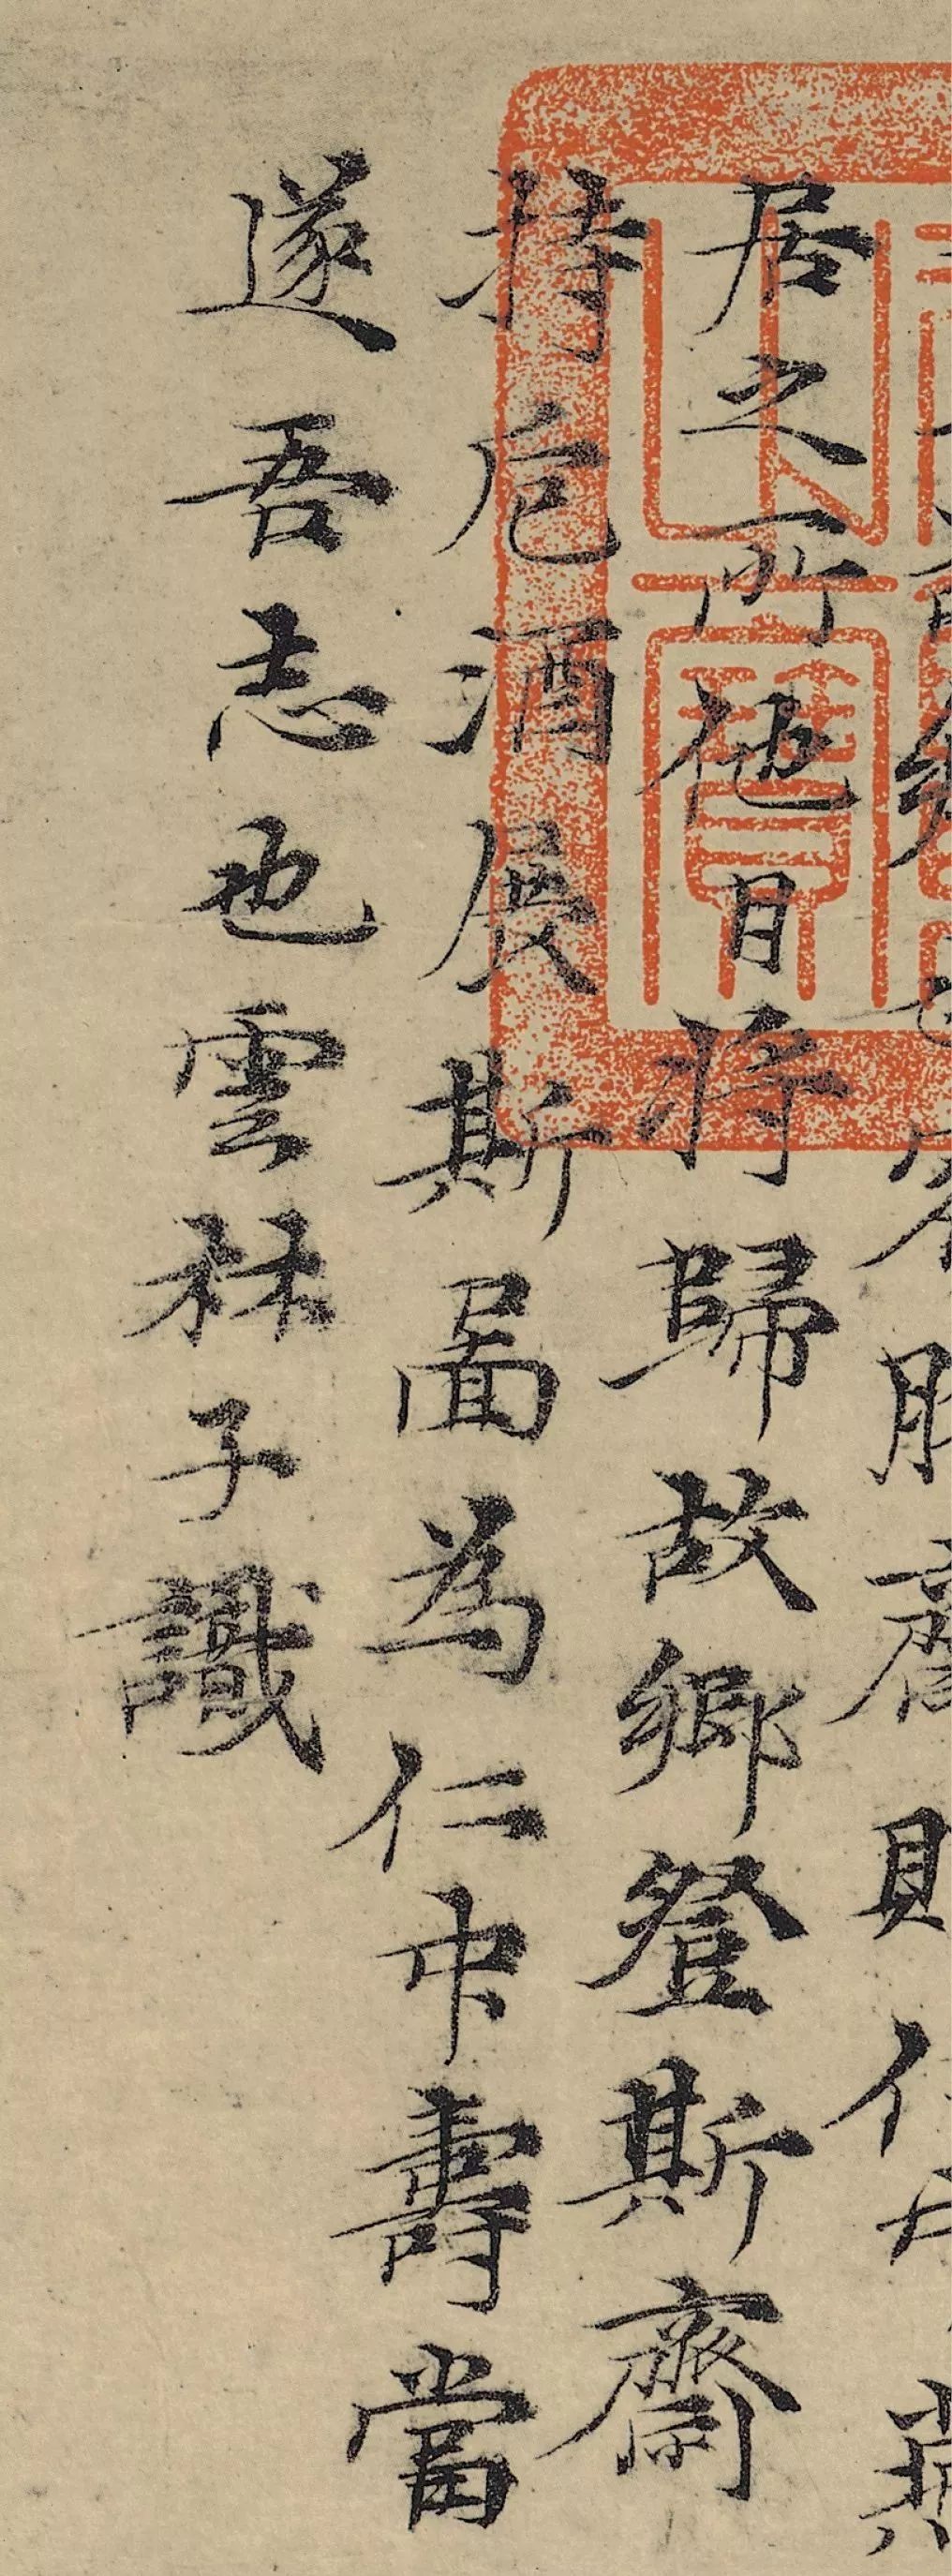 居之所他日將歸故鄉登斯齋
持卮酒展斯圖為仁中壽當
遂吾志也雲林子識